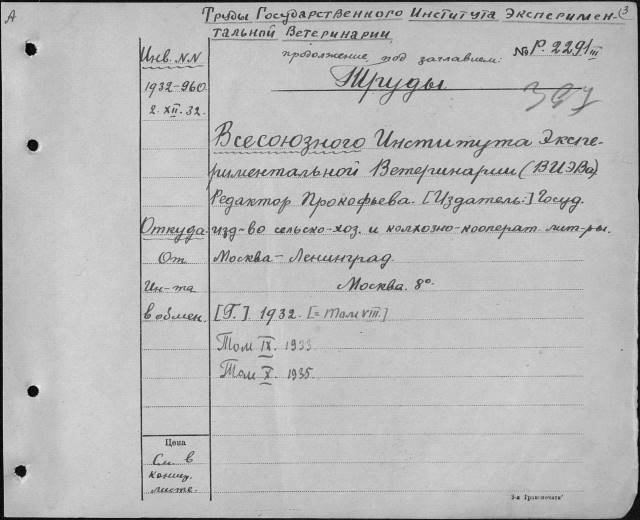 А
Труды Государственного Института Эксперимен- (3
тальной Ветеринарии
продолжение под заглавием: № Р. 2291 III
Инв. N.N
Труды
1932-960
2. XII. 32.
Всесоюзного Института Экспе-
риментальной Ветеринарии (ВИЭВа)
Редактор Прокофьева. [Издатель:] Госуд.
Откуда: изд-во сельско-хоз. и колхозно-кооперат. лит-ры.
От Москва - Ленинград.
Ин-та Москва. 8°.
в обмен. [Г.] 1932. [= Том VIII.]
Том IX. 1933
Том X. 1935.
Цена
См. в
конц.
листе.
3-я Гравпечати